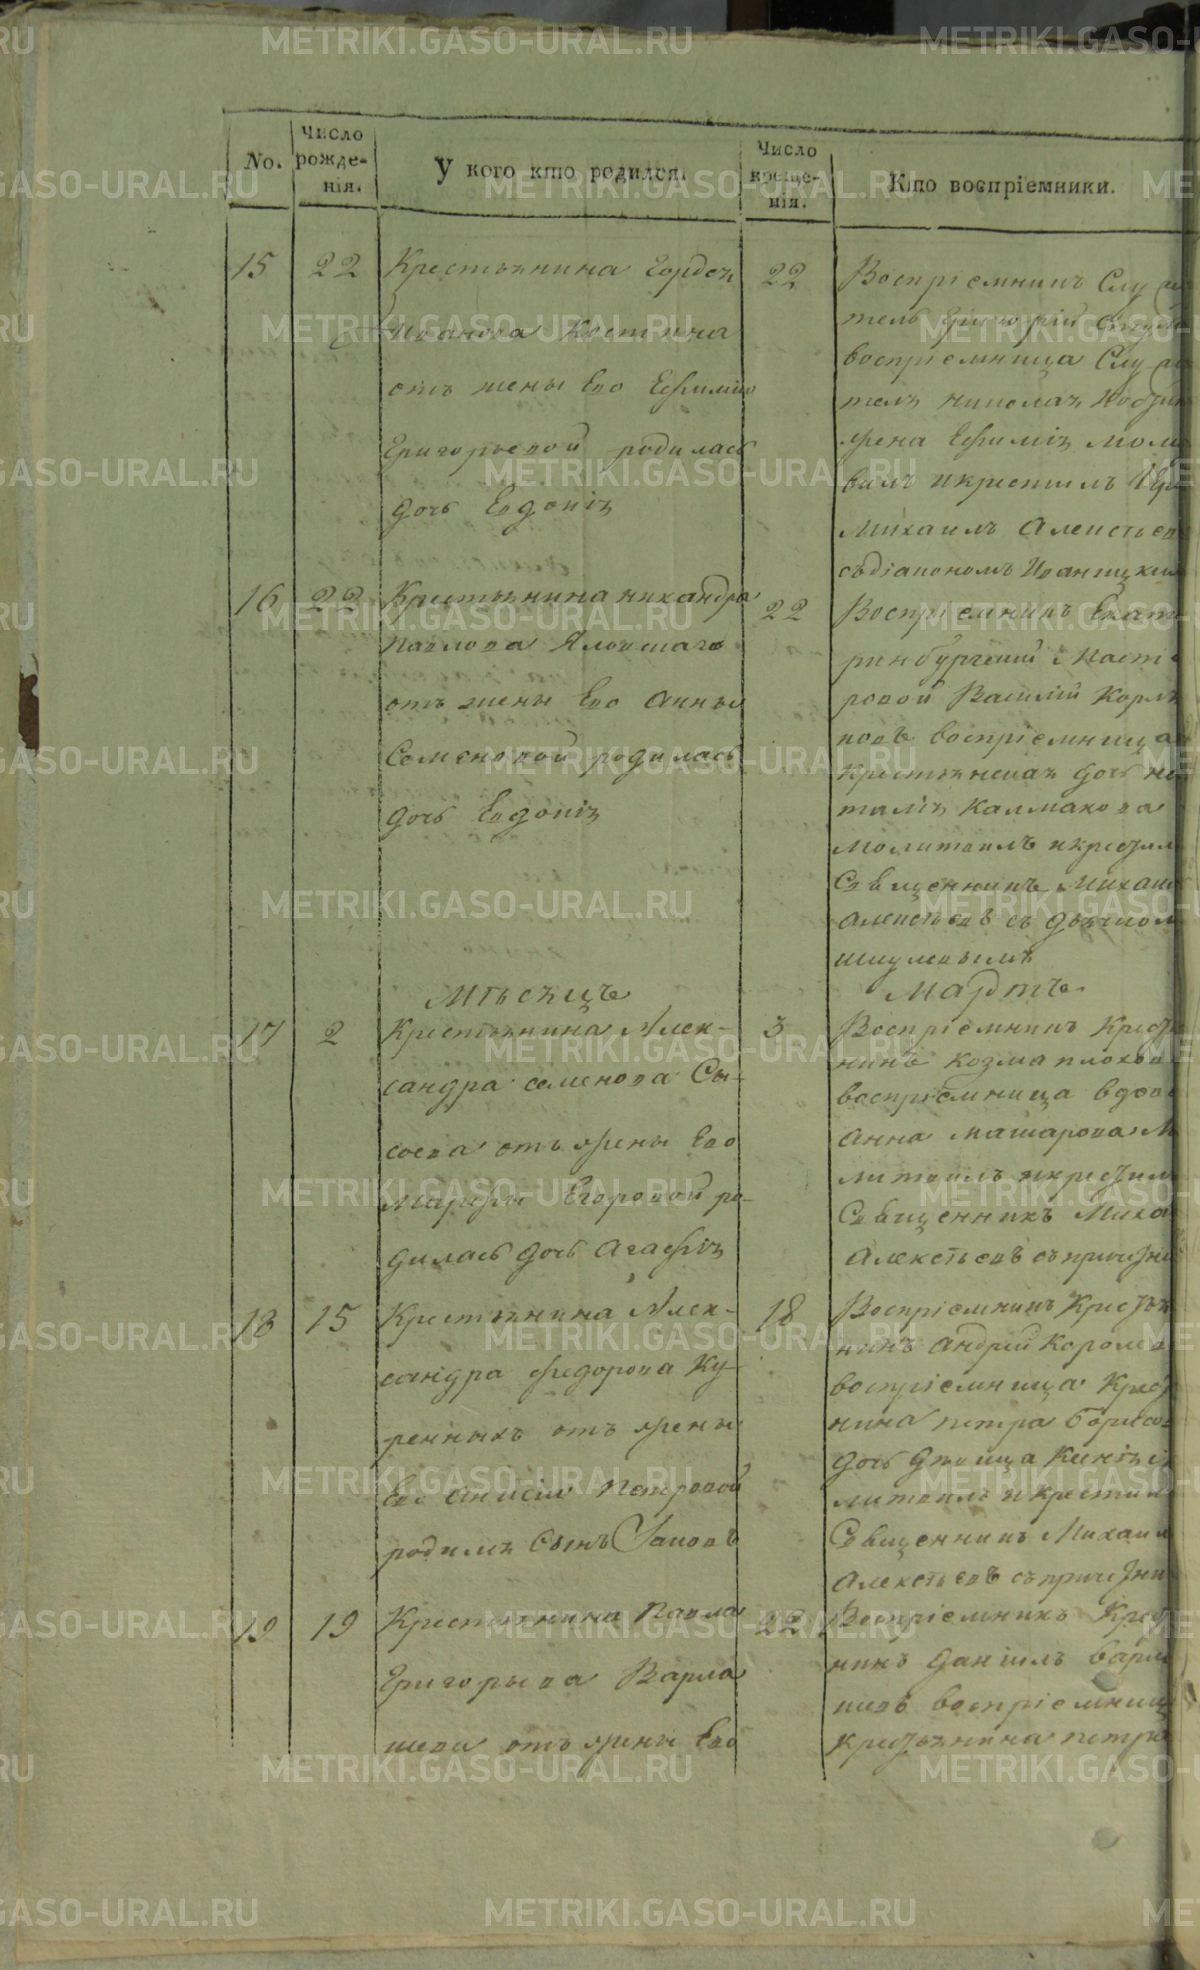 No.
Число рожде-нія.
У кого кто родился.
Число креще-нія.
Кто воспріемники.
15
22
Крестьянина Гордея
Иванова Костина
отъ жены Ево Ефиміи
Григорьевой родилась
дочь Евдокія
22
Воспріемникъ Слу
тель Григорій
воспріемница Слу
теля николая
жена Ефимія моли
вилъ и крестилъ
Михаилъ Алексѣев
съ діакономъ Иваницким
16
22
Крестьянина никандра
Павлова Яловскаго
отъ жены Ево Анны
Семеновой родилась
дочь Евдокія
22
Воспріемникъ Екате
ринбургскій Масте
ровой Василій Корля
ковъ воспріемница
крестьянская дочь на
талія Калмакова
Молитвилъ и крестил
Священникъ Михаил
Алексѣевъ съ дьячком
шиулевымъ
Мѣсяцъ
Мартъ
17
2
Крестьянина Алек-
сандра семенова Сы-
соева отъ жены Ево
Марфы Егоровой ро-
дилась дочь Агафія
3
Воспріемникъ Крестья
нинъ Козма плохов
воспріемница вдов
Анна Машарова М
литвилъ и крестил
Священникъ Миха
Алексѣевъ съ причетни
18
15
Крестьянина Алек-
сандра федорова Ку-
ренныхъ отъ жены
Ево Анисіи Петровой
родилъ Сынъ Іаковъ
18
Воспріемникъ Крестья
нинъ Андрей Королев
воспріемница Крест
нина петра борисо
дочь дѣвица Ксенія М
литвилъ и крестил
Священникъ Михаил
Алексѣевъ съ причетни
19
19
Крестьянина Павла
Григорьева Варла
шева отъ жены Ево
22
Воспріемникъ Крест
нинъ Даніилъ Варла
шевъ воспріемниц
крестьянина петра
METRIKI.GASO-URAL.RU